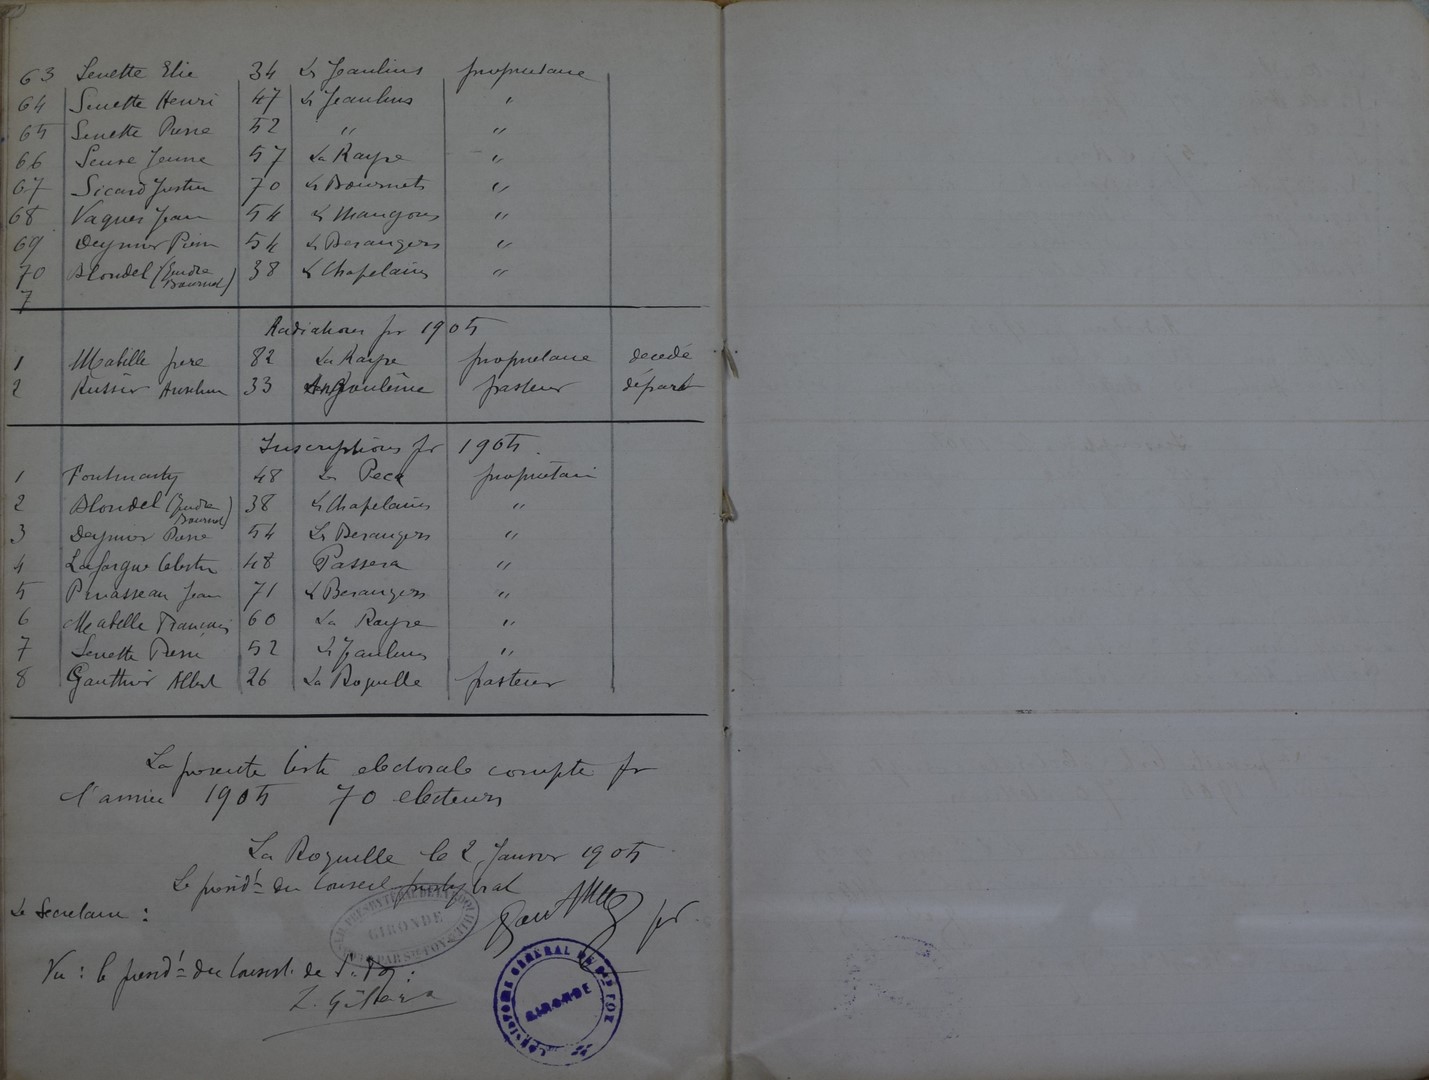 63 Senette Elie 34 Les Jaulins propriétaire
64 Senette Henri 47 Les Jeaulins "
65 Senette Pierre 52 " "
66 57 La Rayre "
67 Sicard Justin 70 Les Bournets "
68 Vagues Jean 54 Les Mangons "
69 Deymier Pierre 54 Les Berangers "
70 Blondel (gendre Bournel) 38 Les Chapelains "
7
Radiations pr 1905
1 Mabille père 82 La Rayre propriétaire décédé
2 Russier Anselme 33 Angoulême pasteur départ
Inscriptions pr 1905.
1 48 propriétaire
2 Blondel (gendre Bournel) 38 Les Chapelains "
3 Deymier Pierre 54 Les Berangers "
4 Lafargue Célestin 48 Passera "
5 Penasseau Jean 71 Les Berangers "
6 Mabille François 60 La Rayre "
7 Senette Pierre 52 Les Jeaulins "
8 Gauthier Albert 26 La Roquille pasteur
La présente liste électorale compte pr
l'année 1905 70 électeurs
La Roquille le 2 Janvier 1905
Le présidt du Conseil presbytéral
Le Secrétaire :
GIRONDE
Vu : le présidt du Consist. de
CONSISTOIRE GÉNÉRAL DE Ste FOY
GIRONDE